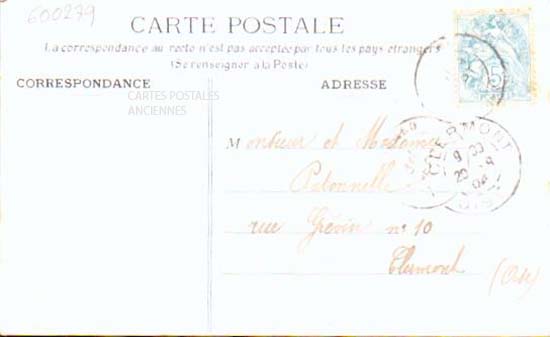 600279
CARTE POSTALE
La correspondance au recto n'est pas acceptée par tous les pays étrangers
(Se renseigner à la Poste)
CORRESPONDANCE
ADRESSE
CARTES POSTALES
ANCIENNES
Monsieur et Madame
rue Grévin n° 10
Clermont
(Oise)
CLERMONT
OISE
5